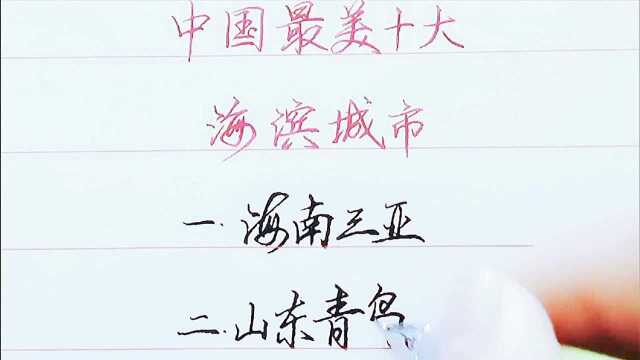 中国最美十大
海滨城市
一.海南三亚
二.山东青岛